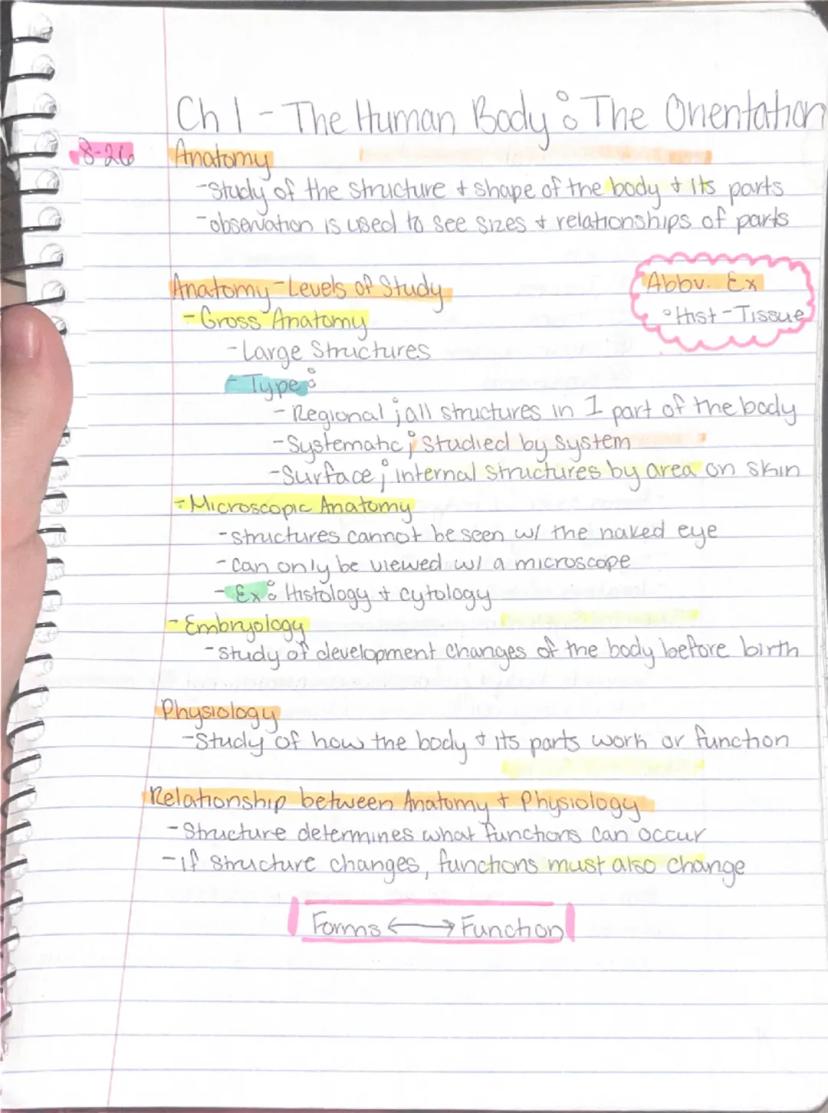 Ch 1 - The Human Body: The Orientation
8-26 Anatomy
-Study of the structure + shape of the body + its parts
-observation is used to see sizes + relationships of parts
Anatomy - Levels of Study
Abbv. Ex
-Gross Anatomy
°Hist - Tissue
-Large Structures
-Type:
-Regional; all structures in 1 part of the body
-Systematic; studied by system
-Surface; internal structures by area on skin
-Microscopic Anatomy
-structures cannot be seen w/ the naked eye
-can only be viewed w/ a microscope
-Ex: Histology + cytology
-Embryology
-study of development changes of the body before birth
Physiology
-Study of how the body + its parts work or function
Relationship between Anatomy + Physiology
-Structure determines what functions can occur
-If structure changes, functions must also change
Forms ⟷ Function